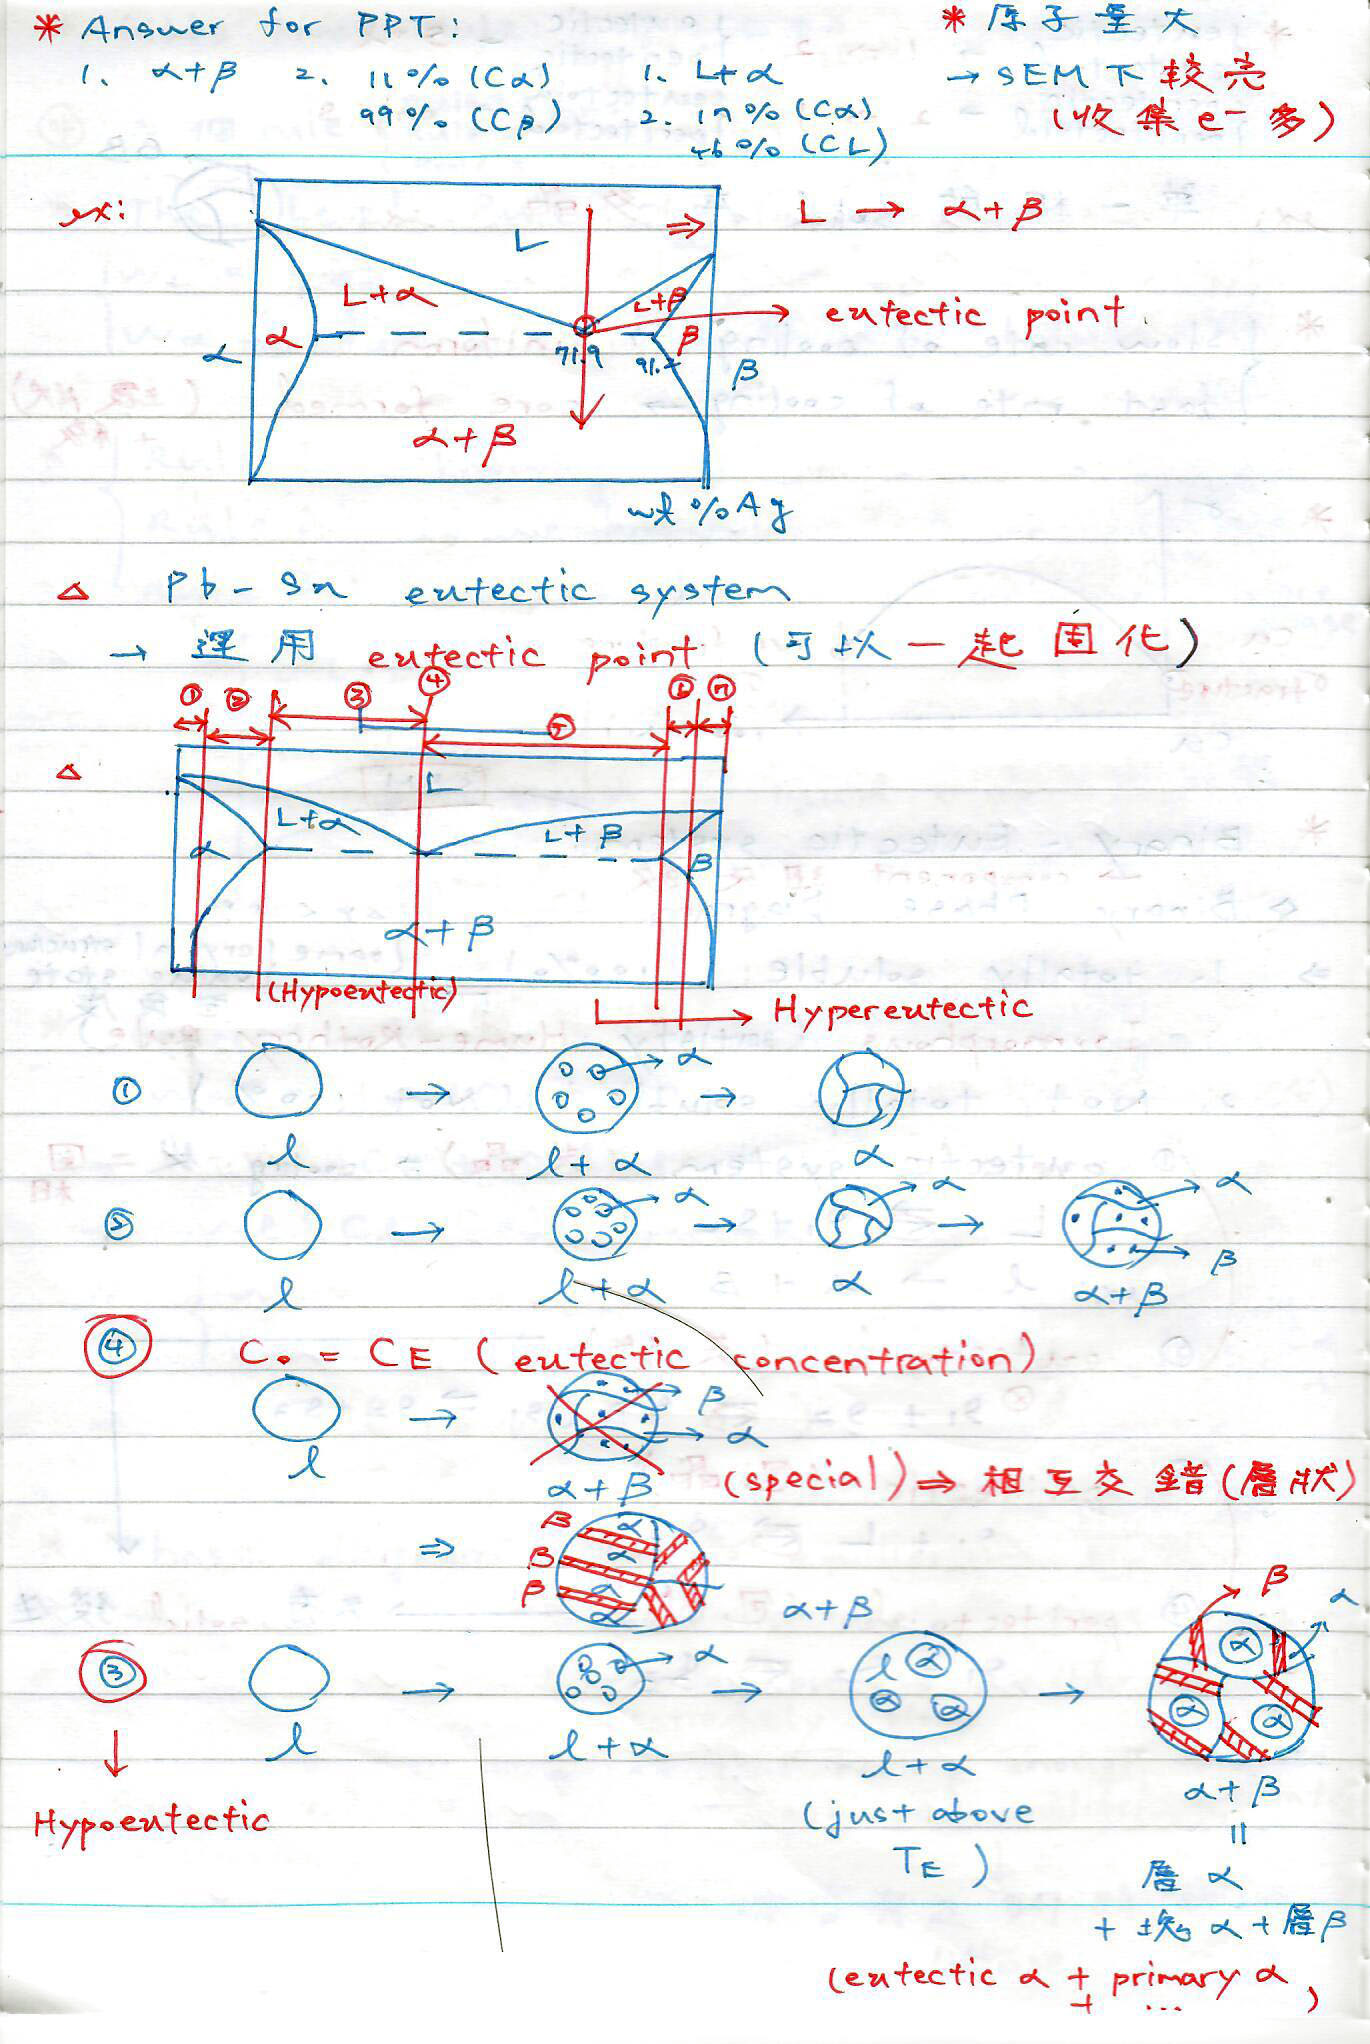 * Answer for PPT:
1. α+β 2. 11% (Cα)
99% (Cβ)
1. L+α
2. 17% (Cα)
46% (CL)
* 原子量大
→ SEM下較亮
(收集e⁻多)
ex:
L → α+β
L
L+α
L+β
eutectic point
α
α
71.9
91.2
β
β
α+β
wt%Ag
△ Pb-Sn eutectic system
→ 運用 eutectic point (可以一起固化)
① ② ③ ④ ⑤ ⑥ ⑦
△
L
L+α
L+β
α
β
α+β
(Hypoeutectic)
→ Hypereutectic
① → α →
l l+α α
② → α → α → α
β
l l+α α α+β
④ C₀ = CE (eutectic concentration)
→ β
α
l α+β (special) ⇒ 相互交錯(層狀)
⇒ β α
β α
β α
α
α+β
③ → α → l α α α → β α
α α α
l l+α l+α α+β
(just above TE)
↓
Hypoeutectic
=
層α
+ 塊α + 層β
(eutectic α + primary α
+ ... )